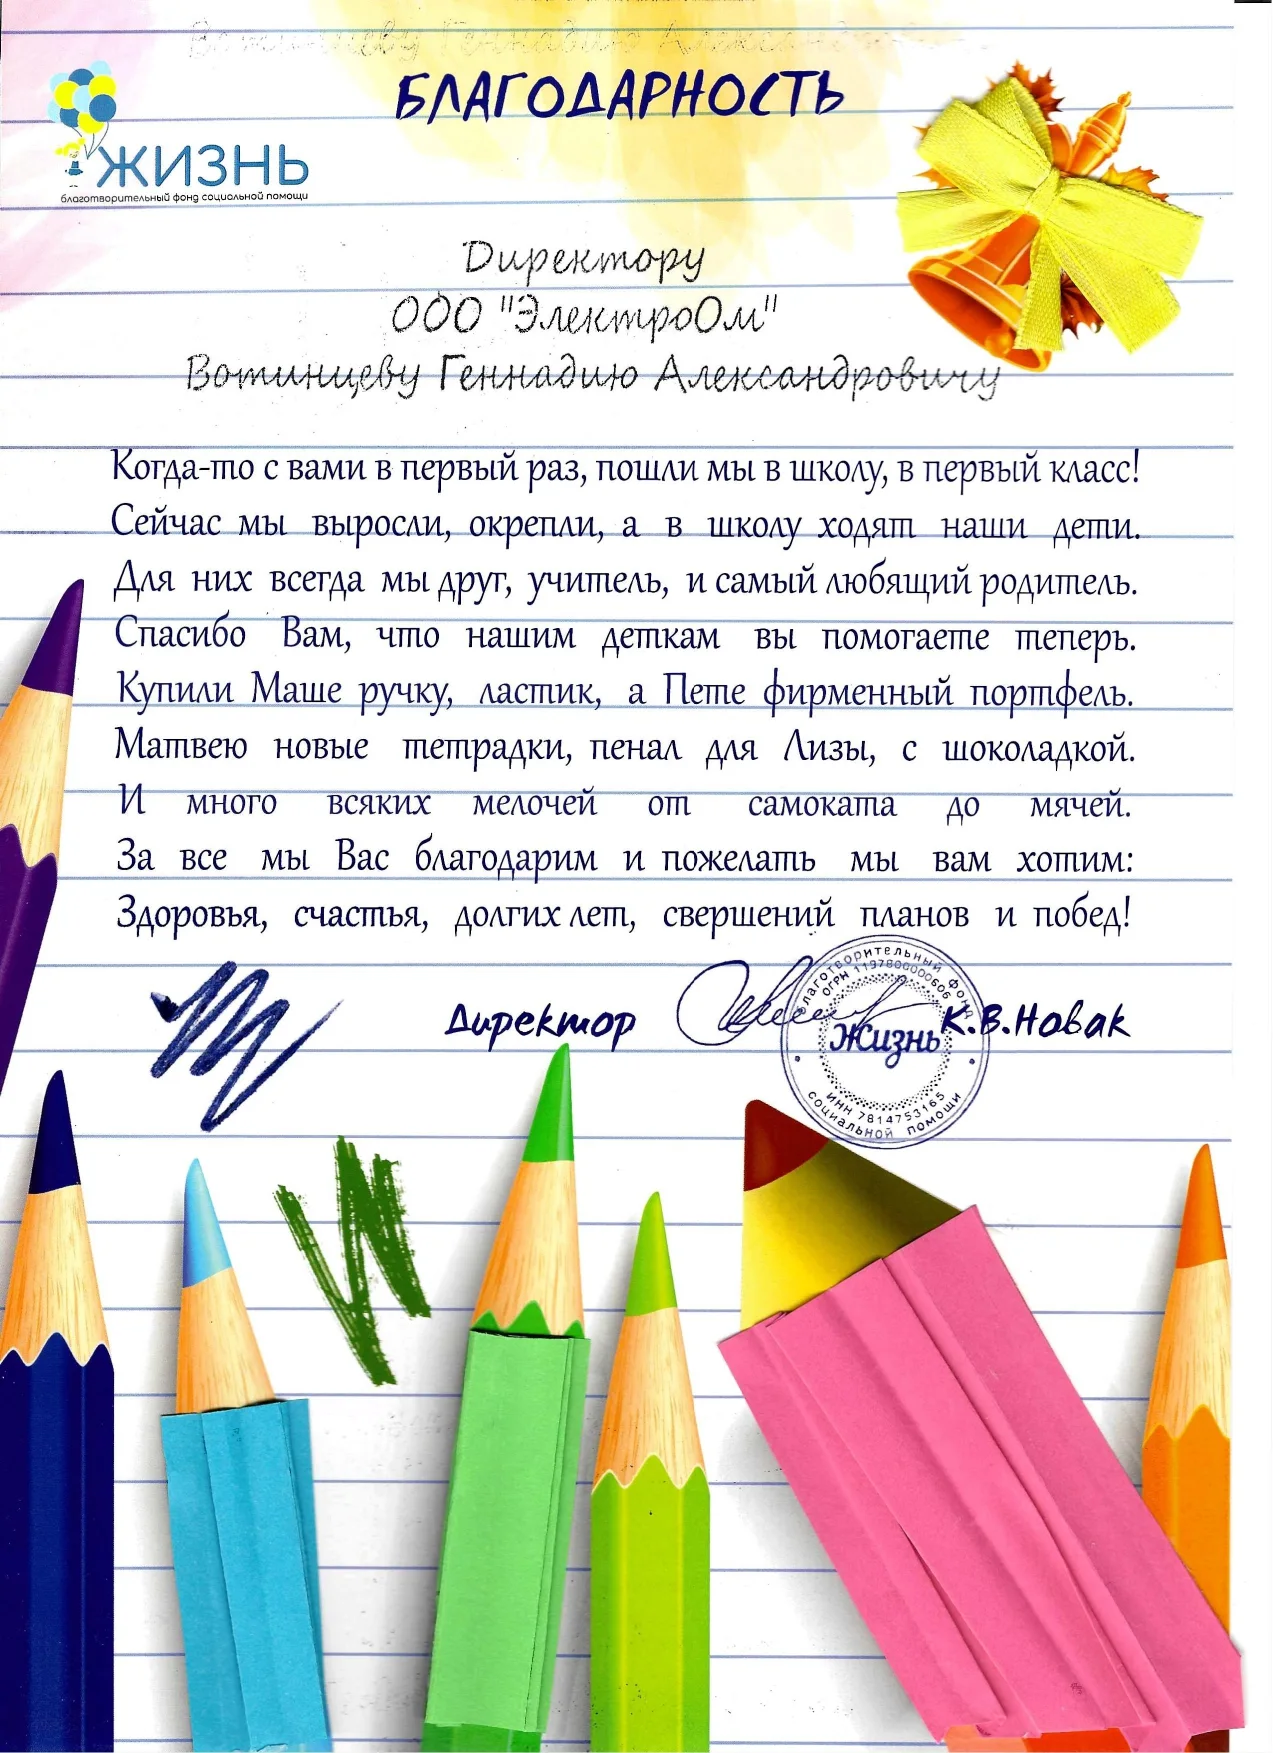 Вотинцеву Геннадию
БЛАГОДАРНОСТЬ
ЖИЗНЬ
благотворительный фонд социальной помощи
Директору
ООО "ЭлектроОм"
Вотинцеву Геннадию Александровичу
Когда-то с вами в первый раз, пошли мы в школу, в первый класс!
Сейчас мы выросли, окрепли, а в школу ходят наши дети.
Для них всегда мы друг, учитель, и самый любящий родитель.
Спасибо Вам, что нашим деткам вы помогаете теперь.
Купили Маше ручку, ластик, а Пете фирменный портфель.
Матвею новые тетрадки, пенал для Лизы, с шоколадкой.
И много всяких мелочей от самоката до мячей.
За все мы Вас благодарим и пожелать мы вам хотим:
Здоровья, счастья, долгих лет, свершений планов и побед!
Директор К.В.Новак
Благотворительный фонд
ОГРН 1197800000606
Жизнь
ИНН 7814753165
социальной помощи